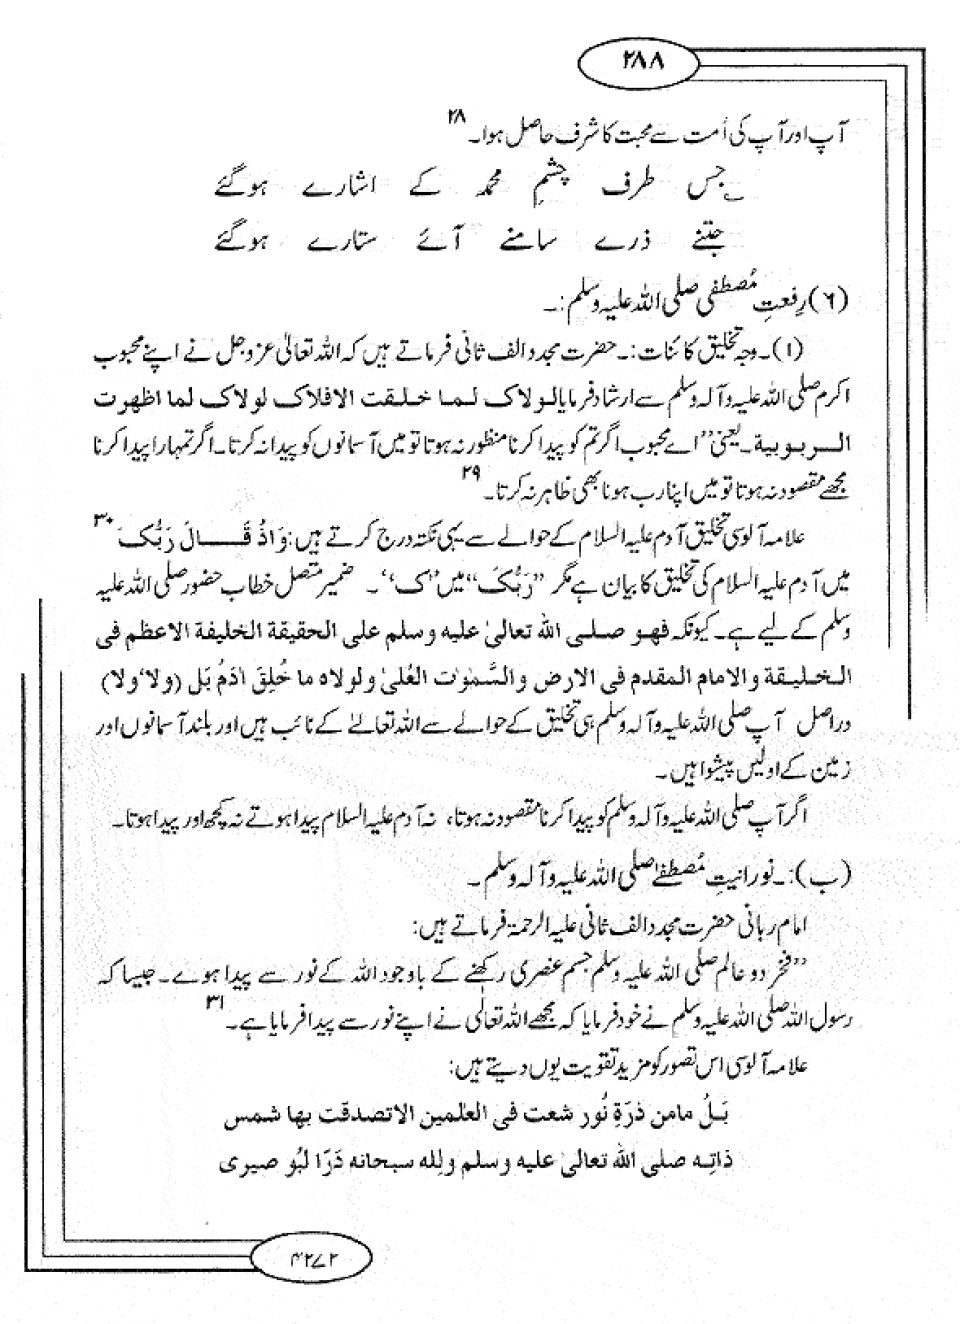 ۲۸۸
آپ اور آپ کی اُمت سے محبت کا شرف حاصل ہوا۔ ۲۸
جس طرف چشمِ محمد کے اشارے ہوگئے
جتنے ذرے سامنے آئے ستارے ہوگئے
(۶) رِفعتِ مُصطفٰی صلی اللہ علیہ وسلم :۔
(ا)۔ وجہ تخلیق کائنات :۔ حضرت مجدد الف ثانی فرماتے ہیں کہ اللہ تعالیٰ عزوجل نے اپنے محبوب
اکرم صلی اللہ علیہ وآلہ وسلم سے ارشاد فرمایا لولاک لما خلقت الافلاک لولاک لما اظهرت
الربوبیة۔ یعنی ”اے محبوب اگر تم کو پیدا کرنا منظور نہ ہوتا تو میں آسمانوں کو پیدا نہ کرتا۔ اگر تمہارا پیدا کرنا
مجھے مقصود نہ ہوتا تو میں اپنا رب ہونا بھی ظاہر نہ کرتا۔ ۲۹
علامہ آلوسی تخلیق آدم علیہ السلام کے حوالے سے یہی نکتہ درج کرتے ہیں: وَاِذْ قَالَ رَبُّکَ ۳۰
میں آدم علیہ السلام کی تخلیق کا بیان ہے مگر ”رَبُّکَ“ میں ”ک“۔ ضمیر متصل خطاب حضور صلی اللہ علیہ
وسلم کے لیے ہے۔ کیونکہ فهو صلی الله تعالیٰ علیه وسلم علی الحقیقة الخلیفة الاعظم فی
الخلیقة والامام المقدم فی الارض والسَّمٰوٰت العُلیٰ ولولاه ما خُلِقَ اٰدَمُ بَل (ولا، ولا)
دراصل آپ صلی اللہ علیہ وآلہ وسلم ہی تخلیق کے حوالے سے اللہ تعالےٰ کے نائب ہیں اور بلند آسمانوں اور
زمین کے اولیں پیشوا ہیں۔
اگر آپ صلی اللہ علیہ وآلہ وسلم کو پیدا کرنا مقصود نہ ہوتا، نہ آدم علیہ السلام پیدا ہوتے نہ کچھ اور پیدا ہوتا۔
(ب):۔ نورانیتِ مُصطفٰے صلی اللہ علیہ وآلہ وسلم۔
امام ربانی حضرت مجدد الف ثانی علیہ الرحمۃ فرماتے ہیں:
”فخر دو عالم صلی اللہ علیہ وسلم جسم عنصری رکھنے کے باوجود اللہ کے نور سے پیدا ہوے۔ جیسا کہ
رسول اللہ صلی اللہ علیہ وسلم نے خود فرمایا کہ مجھے اللہ تعالیٰ نے اپنے نور سے پیدا فرمایا ہے۔ ۳۱
علامہ آلوسی اس تصور کو مزید تقویت یوں دیتے ہیں:
بَلْ مامن ذرَةِ نُور شعت فی العٰلمین الاتصدقت بها شمس
ذاتِه صلی الله تعالیٰ علیه وسلم ولِله سبحانه دَرًا لبُو صیری
۴۲۷۲